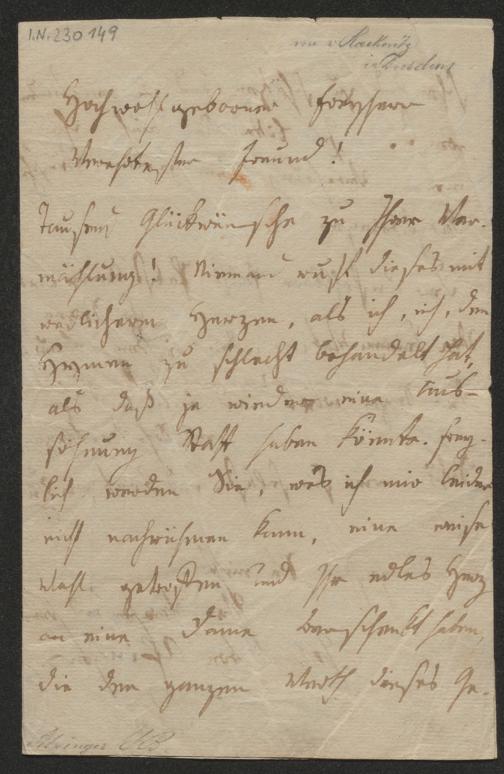 I.N. 230 149
von v. Racknitz
in Dresden
Hochwohlgeborner Freyherr
Verehrtester Freund!
Tausend Glückwünsche zu Ihrer Ver-
mählung! Niemand ruft dieses mit
redlicherm Herzen, als ich, ich, den
Hymen zu schlecht behandelt hat,
als daß je wieder eine Aus-
söhnung Statt haben könnte. Frey-
lich werden Sie, was ich mir leider
nicht nachrühmen kann, eine weise
Wahl getroffen und Ihr edles Herz
an eine Dame verschenkt haben,
die den ganzen Werth dieses Ge-